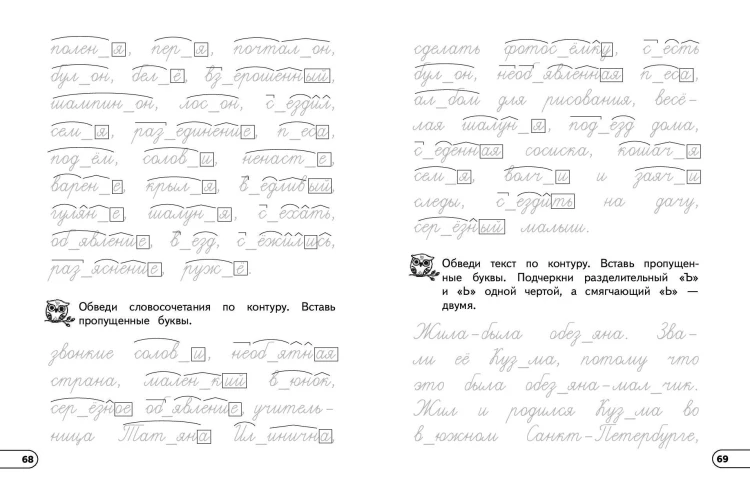 полен_я, пер_я, почтал_он,
бул_он, бел_ё, вз_ерошенный,
шампин_он, лос_он, с_ездил,
сем_я, раз_единение, п_еса,
под_ём, солов_и, ненаст_е,
варен_е, крыл_я, в_едливый,
гулян_е, шалун_я, с_ехать,
об_явление, в_езд, с_ежились,
раз_яснение, руж_е.
Обведи словосочетания по контуру. Вставь
пропущенные буквы.
звонкие солов_и, необ_ятная
страна, мален_кий в_юнок,
сер_езное об_явление, учитель-
ница Тат_яна Ил_инична,
68
сделать фотос_ёмку, с_есть
бул_он, необ_явленная п_еса,
ал_бом для рисования, весё-
лая шалун_я, под_езд дома,
с_еденная сосиска, кошач_я
сем_я, волч_и и заяч_и
следы, с_ездить на дачу,
сер_ёзный малыш.
Обведи текст по контуру. Вставь пропущен-
ные буквы. Подчеркни разделительный «Ъ»
и «Ь» одной чертой, а смягчающий «Ь» —
двумя.
Жила-была обез_яна. Зва-
ли её Куз_ма, потому что
это была обез_яна-мал_чик.
Жил и родился Куз_ма во
в_южном Санкт-Петербурге,
69